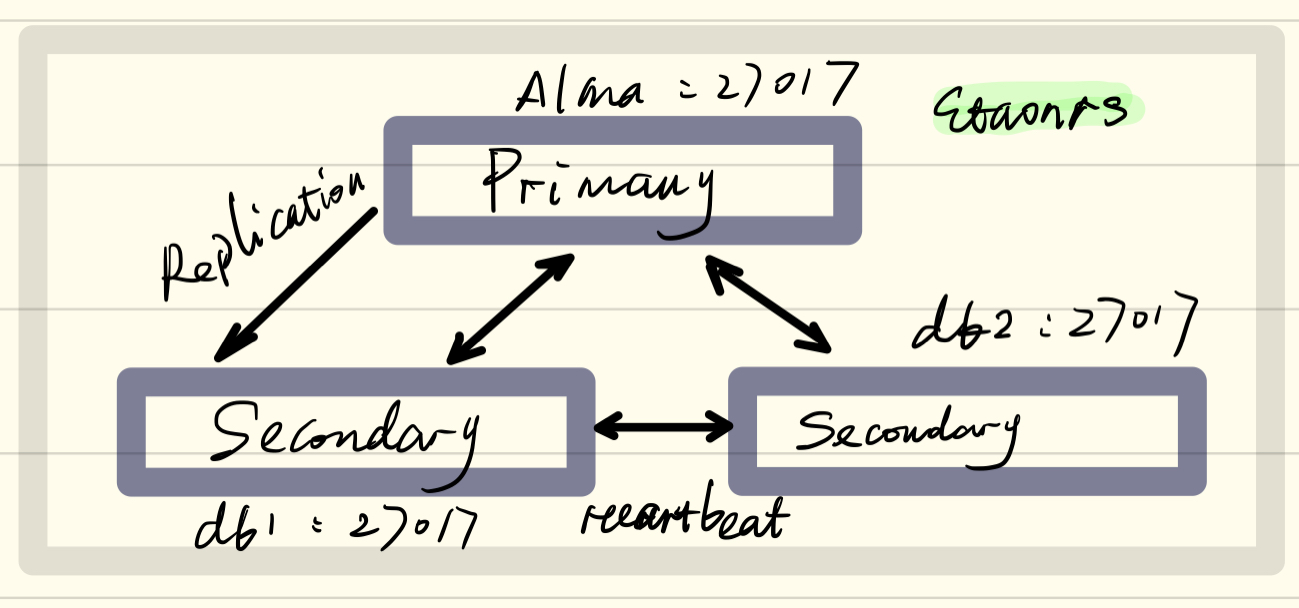 Alma : 27017
Etaonrs
Primary
Replication
db2 : 27017
Secondary
Secondary
db1 : 27017
heartbeat